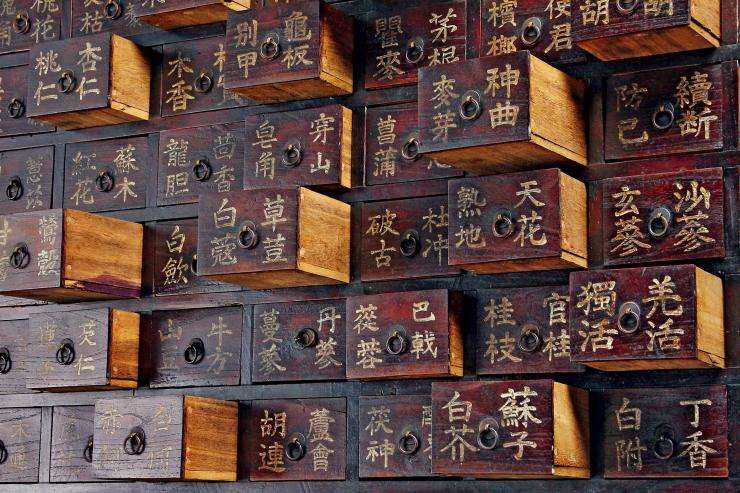 別甲
龜板
瞿麥
茅根
檳榔
使君
胡
胡
桃仁
杏仁
木香
麥芽
神曲
防己
續斷
紅花
蘇木
龍膽
茴香
皂角
穿山
菖蒲
白歛
白蔻
草荳
破古
杜冲
熟地
天花
玄參
沙參
苡仁
山
牛方
丹參
蓯蓉
巴戟
桂枝
官桂
獨活
羌活
胡連
蘆會
茯神
白芥
蘇子
白附
丁香